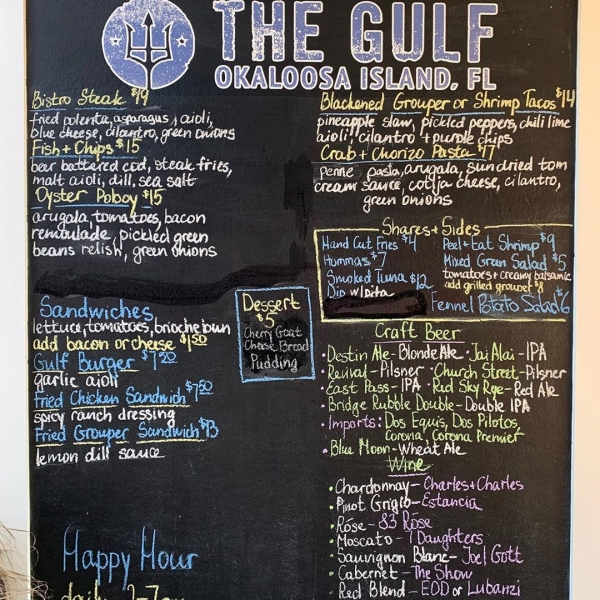 THE GULF
OKALOOSA ISLAND, FL
Bistro Steak $19
fried polenta, asparagus, aioli,
blue cheese, cilantro, green onions
Fish + Chips $15
beer battered cod, steak fries,
malt aioli, dill, sea salt
Oyster Poboy $15
arugala tomatoes, bacon
remoulade, pickled green
beans relish, green onions
Sandwiches
lettuce, tomatoes, brioche bun
add bacon or cheese $1.50
Gulf Burger $7.50
garlic aioli
Fried Chicken Sandwich $7.50
spicy ranch dressing
Fried Grouper Sandwich $13
lemon dill sauce
Happy Hour
daily
Dessert
$5
Cherry Goat
Cheese Bread
Pudding
Blackened Grouper or Shrimp Tacos $14
pineapple slaw, pickled peppers, chili lime
aioli, cilantro + purple chips
Crab + Chorizo Pasta $17
penne pasta, arugala, sundried tom
cream sauce, cotija cheese, cilantro,
green onions
Shares + Sides
Hand Cut Fries $4
Hummas $7
Smoked Tuna $12
Dip w/ pita
Peel + Eat Shrimp $9
Mixed Green Salad $5
tomatoes + creamy balsamic
add grilled grouper $8
Fennel Potato Salad $6
Craft Beer
• Destin Ale - Blonde Ale • Jai Alai - IPA
• Revival - Pilsner • Church Street - Pilsner
• East Pass - IPA • Red Sky Rye - Red Ale
• Bridge Rubble Double - Double IPA
• Imports: Dos Equis, Dos Pilotos
Corona, Corona Premier
• Blue Moon - Wheat Ale
Wine
• Chardonnay - Charles + Charles
• Pinot Grigio - Estancia
• Rose - 83 Rose
• Moscato - 7 Daughters
• Sauvignon Blanc - Joel Gott
• Cabernet - The Show
• Red Blend - EDD or Lubanzi